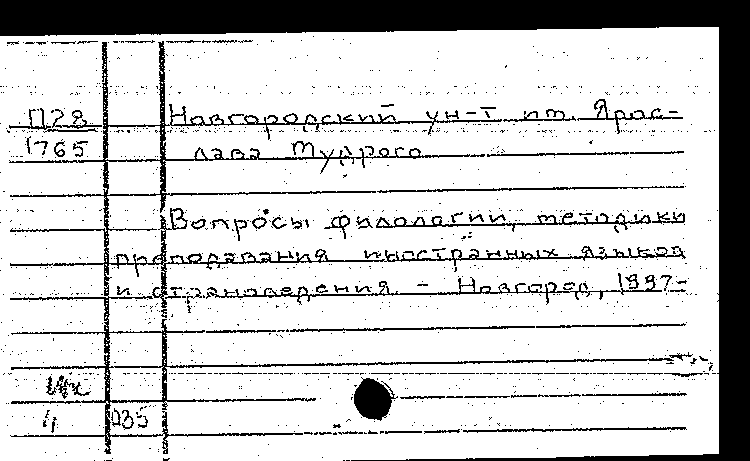 П28 Новгородский ун-т им. Ярос-
1765 лава Мудрого
Вопросы филологии, методики
преподавания иностранных языков
и страноведения. - Новгород, 1997-
235